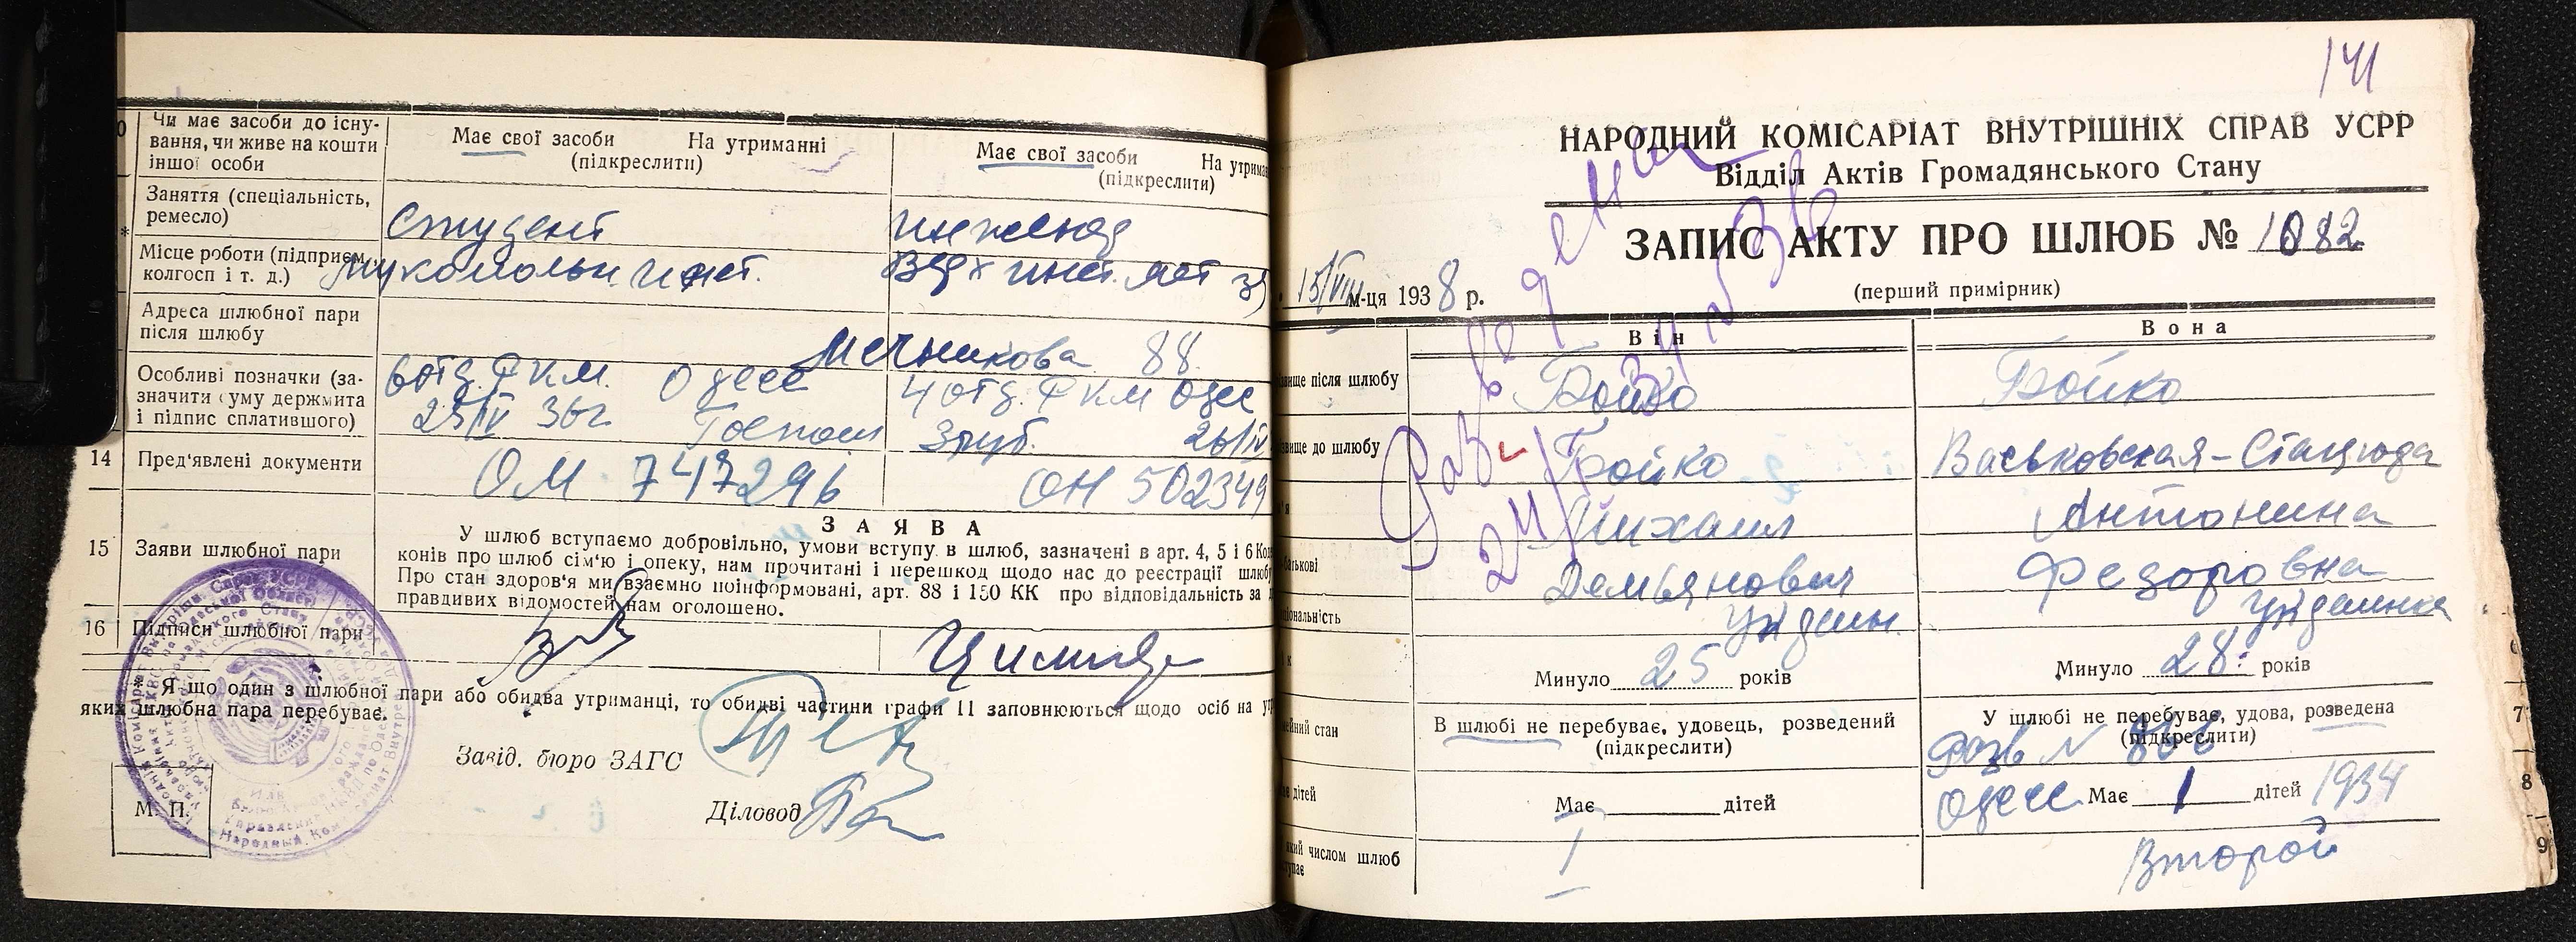 Чи має засоби до існу-
вання, чи живе на кошти
іншої особи
Має свої засоби На утриманні
(підкреслити)
Має свої засоби На утрима
(підкреслити)
Заняття (спеціальність,
ремесло)
Студент
инженер
Місце роботи (підприєм.,
колгосп і т. д.)
мукомольн. инст.
Адреса шлюбної пари
після шлюбу
Мечникова 88
Особливі позначки (за-
значити суму держмита
і підпис сплатившого)
6 отд. РКМ. Одесс
4 отд. РКМ Одес
23/IV 36 г.
3 руб. 26/IV
14 Пред'явлені документи
ОМ 747296
ОН 502349
ЗАЯВА
15 Заяви шлюбної пари
У шлюб вступаємо добровільно, умови вступу в шлюб, зазначені в арт. 4, 5 і 6 Код
конів про шлюб сім'ю і опеку, нам прочитані і перешкод щодо нас до реєстрації шлюбу
Про стан здоров'я ми взаємно поінформовані, арт. 88 і 150 КК про відповідальність за
правдивих відомостей нам оголошено.
16 Підписи шлюбної пари
Якщо один з шлюбної пари або обидва утриманці, то обидві частини графи 11 заповнюються щодо осіб на ут
яких шлюбна пара перебуває.
Завід. бюро ЗАГС
Діловод
М. П.
141
НАРОДНИЙ КОМІСАРІАТ ВНУТРІШНІХ СПРАВ УСРР
Відділ Актів Громадянського Стану
ЗАПИС АКТУ ПРО ШЛЮБ № 1082
15/VIII м-ця 1938 р.
(перший примірник)
Він
Вона
звище після шлюбу
Бойко
Бойко
звище до шлюбу
Бойко
Васьковская-Стацюра
Михаил
Антонина
батькові
Демьянович
Федоровна
ціональність
Украин.
Украинка
Минуло 25 років
Минуло 28 років
мейний стан
В шлюбі не перебуває, удовець, розведений
(підкреслити)
У шлюбі не перебуває, удова, розведена
(підкреслити)
Разв № 866
7
ає дітей
Має дітей
Одесс Має 1 дітей 1934
8
який числом шлюб
тупає
I
Второй
9